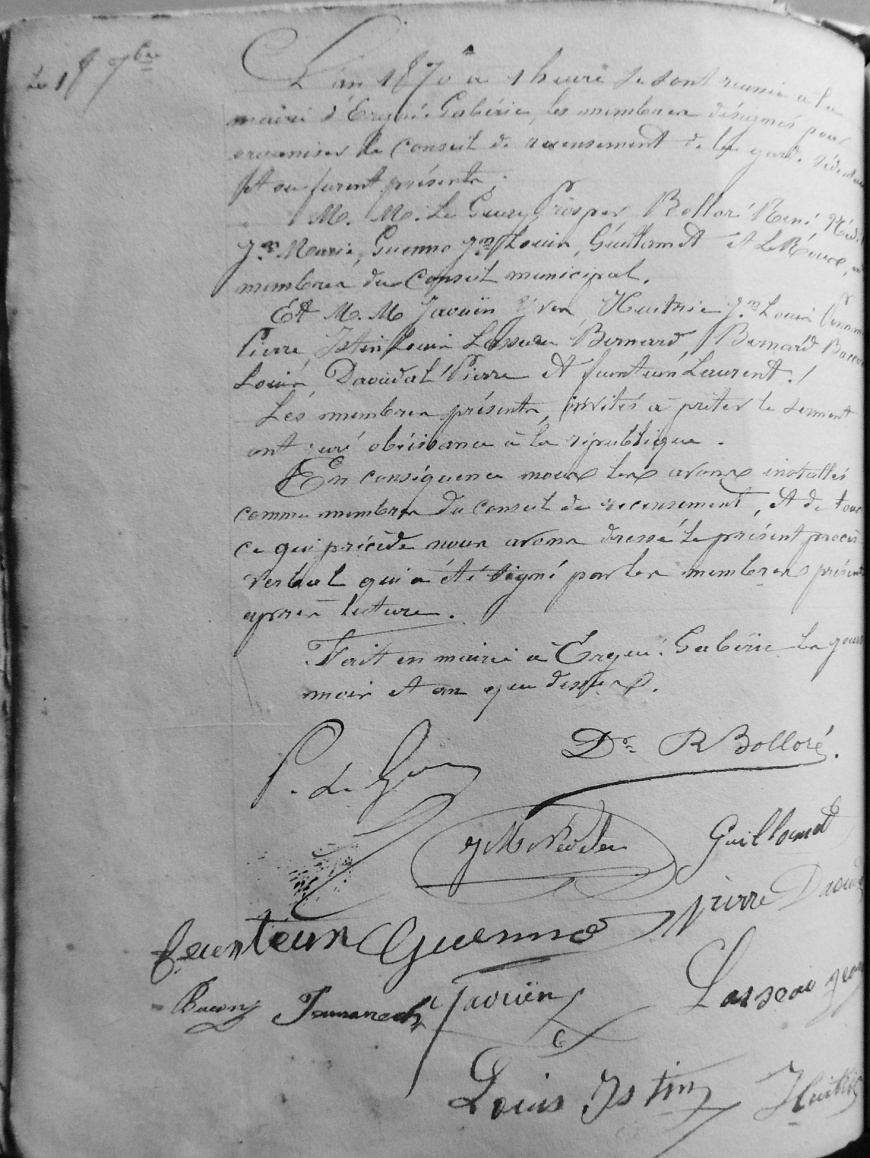 Le 18 7bre
L'an 1870 a 1 heure se sont reunis a la
mairie d'Ergué-Gabéric, les membres désignés pour
organiser le Conseil de recensement de la garde sédentaire
Et ou furent présents;
M. M. Le Guay Prosper, Bolloré René,
Jn Marie, Guenno Jn Louis, Guillamet et Le Roux,
membres du Conseil municipal.
Et M. M Javoüen Yven Huitric Jn Louis
Pierre, Istin Louis Lasseau Bernard, Bernard
Louis Daoudal Pierre et funteun Laurent.
Les membres présents, invités a prêter le serment
ont juré obéissance à la république.
En conséquence nous les avons installés
comme membres du conseil de recensement, et de tout
ce qui précède nous avons dressé le présent procès
verbal qui a été signé par les membres présents
après lecture.
Fait en mairie a Ergué-Gabéric les jour
mois et an que dessus.
P. Le Guay
Dr R Bolloré.
JM Nédélec Guillamet
Pierre Daoudal
feunteun Guenno
Javoüen Lasseau
Louis Istin Huitric